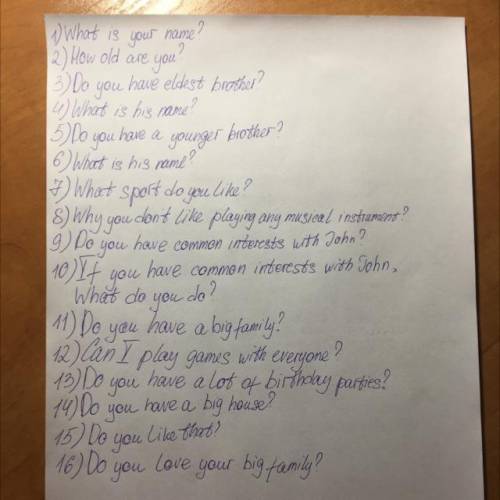 1) What is your name?
2) How old are you?
3) Do you have eldest brother?
4) What is his name?
5) Do you have a younger brother?
6) What is his name?
7) What sport do you like?
8) Why you don't like playing any musical instrument?
9) Do you have common interests with John?
10) If you have common interests with John,
What do you do?
11) Do you have a big family?
12) Can I play games with everyone?
13) Do you have a lot of birthday parties?
14) Do you have a big house?
15) Do you like that?
16) Do you love your big family?